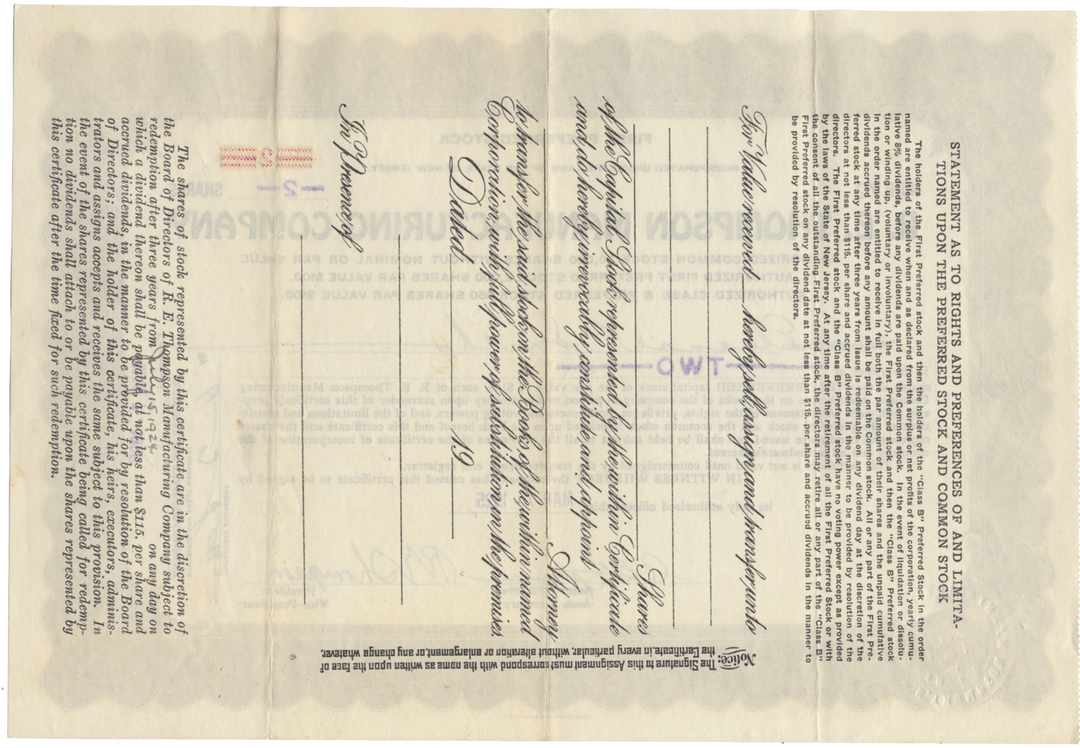 STATEMENT AS TO RIGHTS AND PREFERENCES OF AND LIMITA-
TIONS UPON THE PREFERRED STOCK AND COMMON STOCK
The holders of the First Preferred stock and then the holders of the "Class B" Preferred Stock in the order
named are entitled to receive when and as declared from the surplus or net profits of the corporation, yearly cumu-
lative 8% dividends, before any dividends are paid upon the Common stock. In the event of liquidation or dissolu-
tion or winding up, (voluntary or involuntary), the First Preferred stock and then the "Class B" Preferred stock
in the order named are entitled to receive in full both the par amount of their shares and the unpaid cumulative
dividends accrued thereon before any amount shall be paid on the Common stock. All or any part of the First Pre-
ferred stock at any time after three years from issue is redeemable on any dividend day at the discretion of the
directors at not less than $115. per share and accrued dividends in the manner to be provided by resolution of the
directors. The First Preferred stock and the "Class B" Preferred stock have no voting power except as provided
by the laws of the State of New Jersey. At any time after the retirement of all the First Preferred Stock or with
the consent of all the outstanding First Preferred stock, the directors may retire all or any part of the "Class B"
First Preferred stock on any dividend date at not less than $115. per share and accrued dividends in the manner to
be provided by resolution of the directors.
For Value received hereby sell, assign and transfer unto
Shares
of the Capital Stock represented by the within Certificate
and do hereby irrevocably constitute and appoint
Attorney
to transfer the said stock on the Books of the within named
Corporation with full power of substitution in the premises.
Dated 19
In Presence of
Notice: The Signature to this Assignment must correspond with the name as written upon the face of
the Certificate, in every particular, without alteration or enlargement, or any change whatever.
The shares of stock represented by this certificate are in the discretion of
the Board of Directors of R. E. Thompson Manufacturing Company subject to
redemption after three years from July 15, 1924 on any day on
which a dividend thereon shall be payable, at not less than $115. per share and
accrued dividends, in the manner to be provided for by resolution of the Board
of Directors; and the holder of this certificate, his heirs, executors, adminis-
trators and assigns accepts and receives the same subject to this provision. In
the event of the shares represented by this certificate being called for redemp-
tion no dividends shall attach to or be payable upon the shares represented by
this certificate after the time fixed for such redemption.